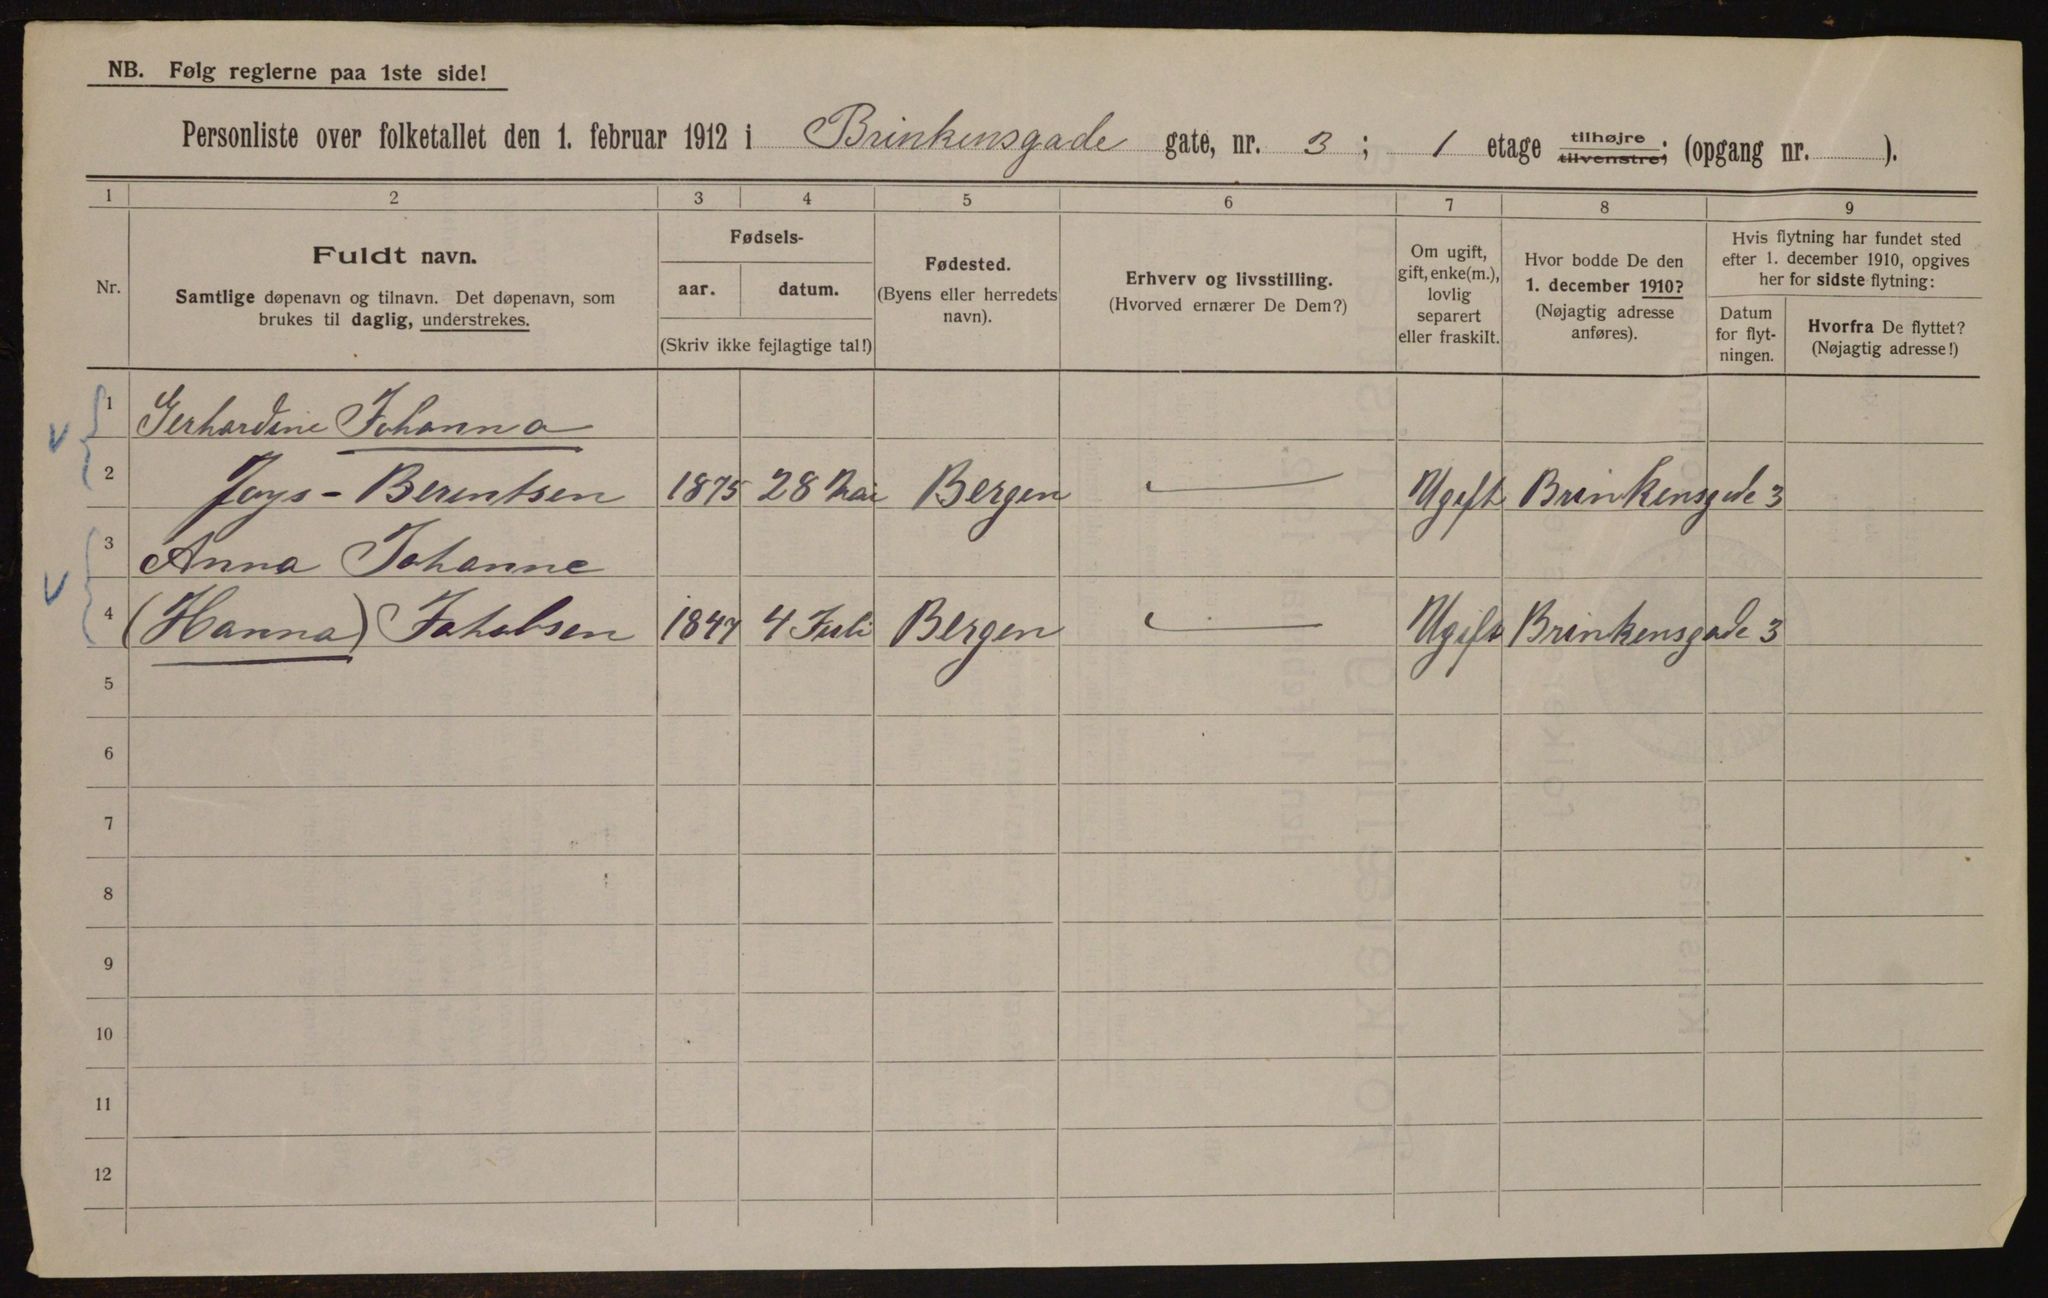 NB. Følg reglerne paa 1ste side!
Personliste over folketallet den 1. februar 1912 i Brinkensgade gate, nr. 3; 1 etage tilhøjre tilvenstre; (opgang nr. ).
1 2 3 4 5 6 7 8 9
Nr.
Fuldt navn.
Samtlige døpenavn og tilnavn. Det døpenavn, som
brukes til daglig, understrekes.
Fødsels-
aar. datum.
(Skriv ikke fejlagtige tal!)
Fødested.
(Byens eller herredets
navn).
Erhverv og livsstilling.
(Hvorved ernærer De Dem?)
Om ugift,
gift, enke(m.),
lovlig
separert
eller fraskilt.
Hvor bodde De den
1. december 1910?
(Nøjagtig adresse
anføres).
Hvis flytning har fundet sted
efter 1. december 1910, opgives
her for sidste flytning:
Datum
for flyt-
ningen.
Hvorfra De flyttet?
(Nøjagtig adresse!)
1 Gerhardine Johanna
2 Joys - Berentsen 1875 28 Mai Bergen Ugift Brinkensgade 3
3 Anna Johanne
4 (Hanna) Jakobsen 1847 4 Juli Bergen Ugift Brinkensgade 3
5
6
7
8
9
10
11
12